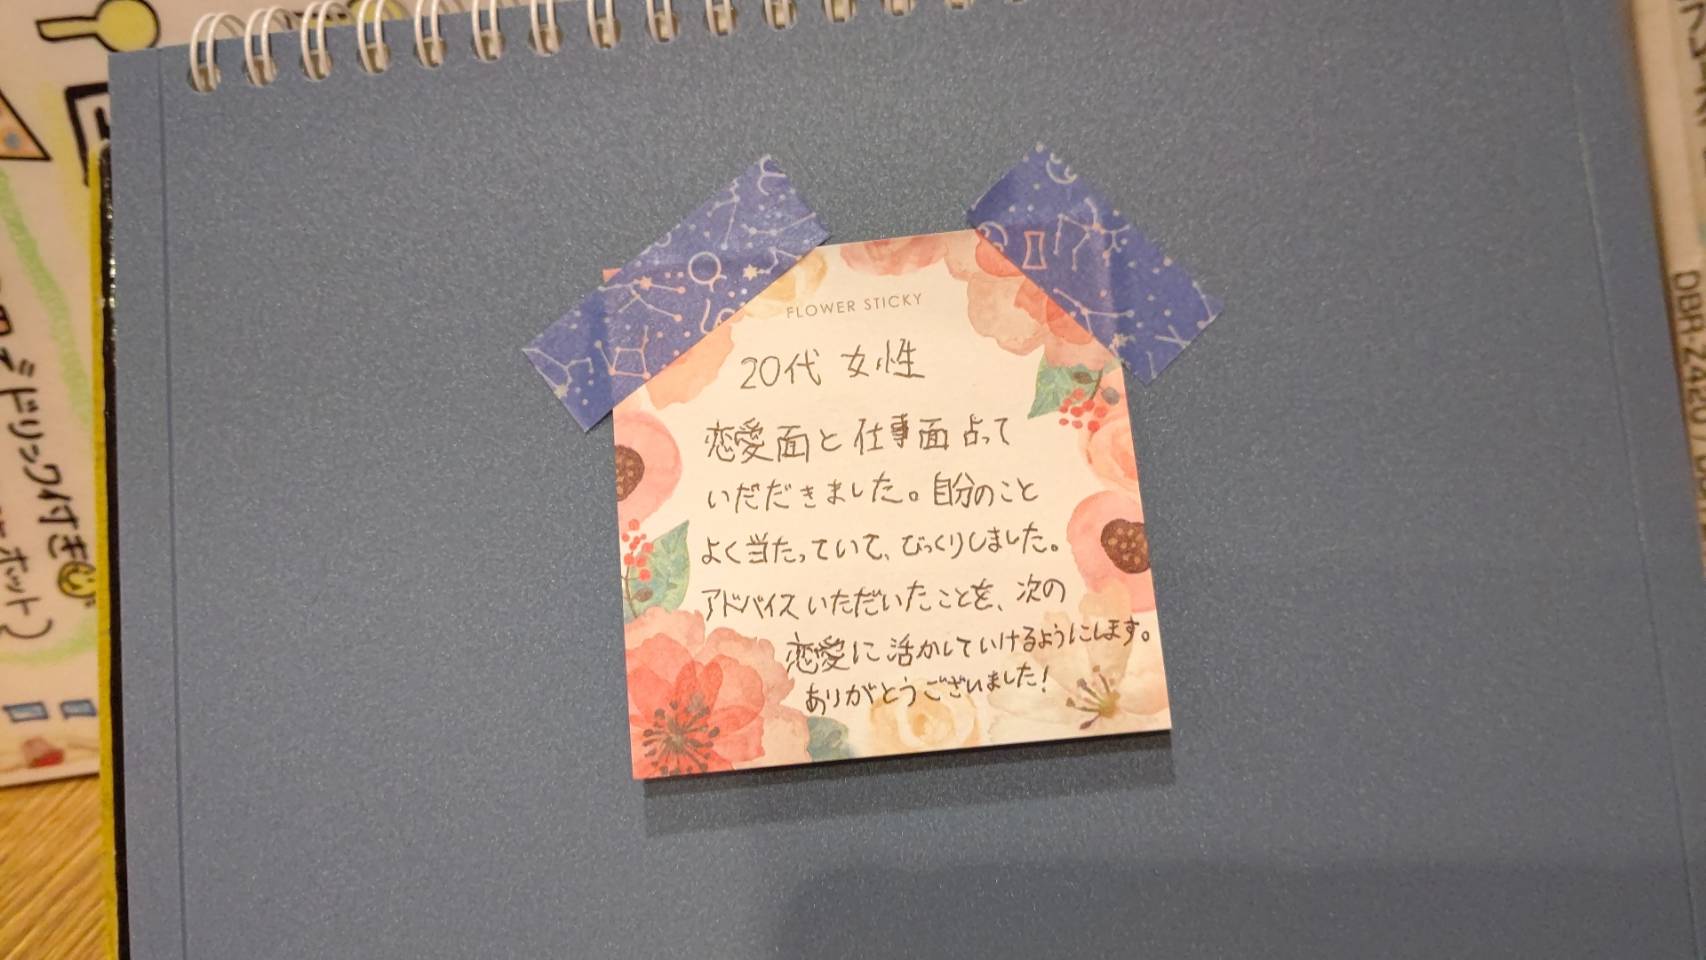 FLOWER STICKY
20代 女性
恋愛面と仕事面占って
いだだきました。自分のこと
よく当たっていて、びっくりしました。
アドバイスいただいたことを、次の
恋愛に活かしていけるようにします。
ありがとうございました!
ミドリンク付き
ホット)